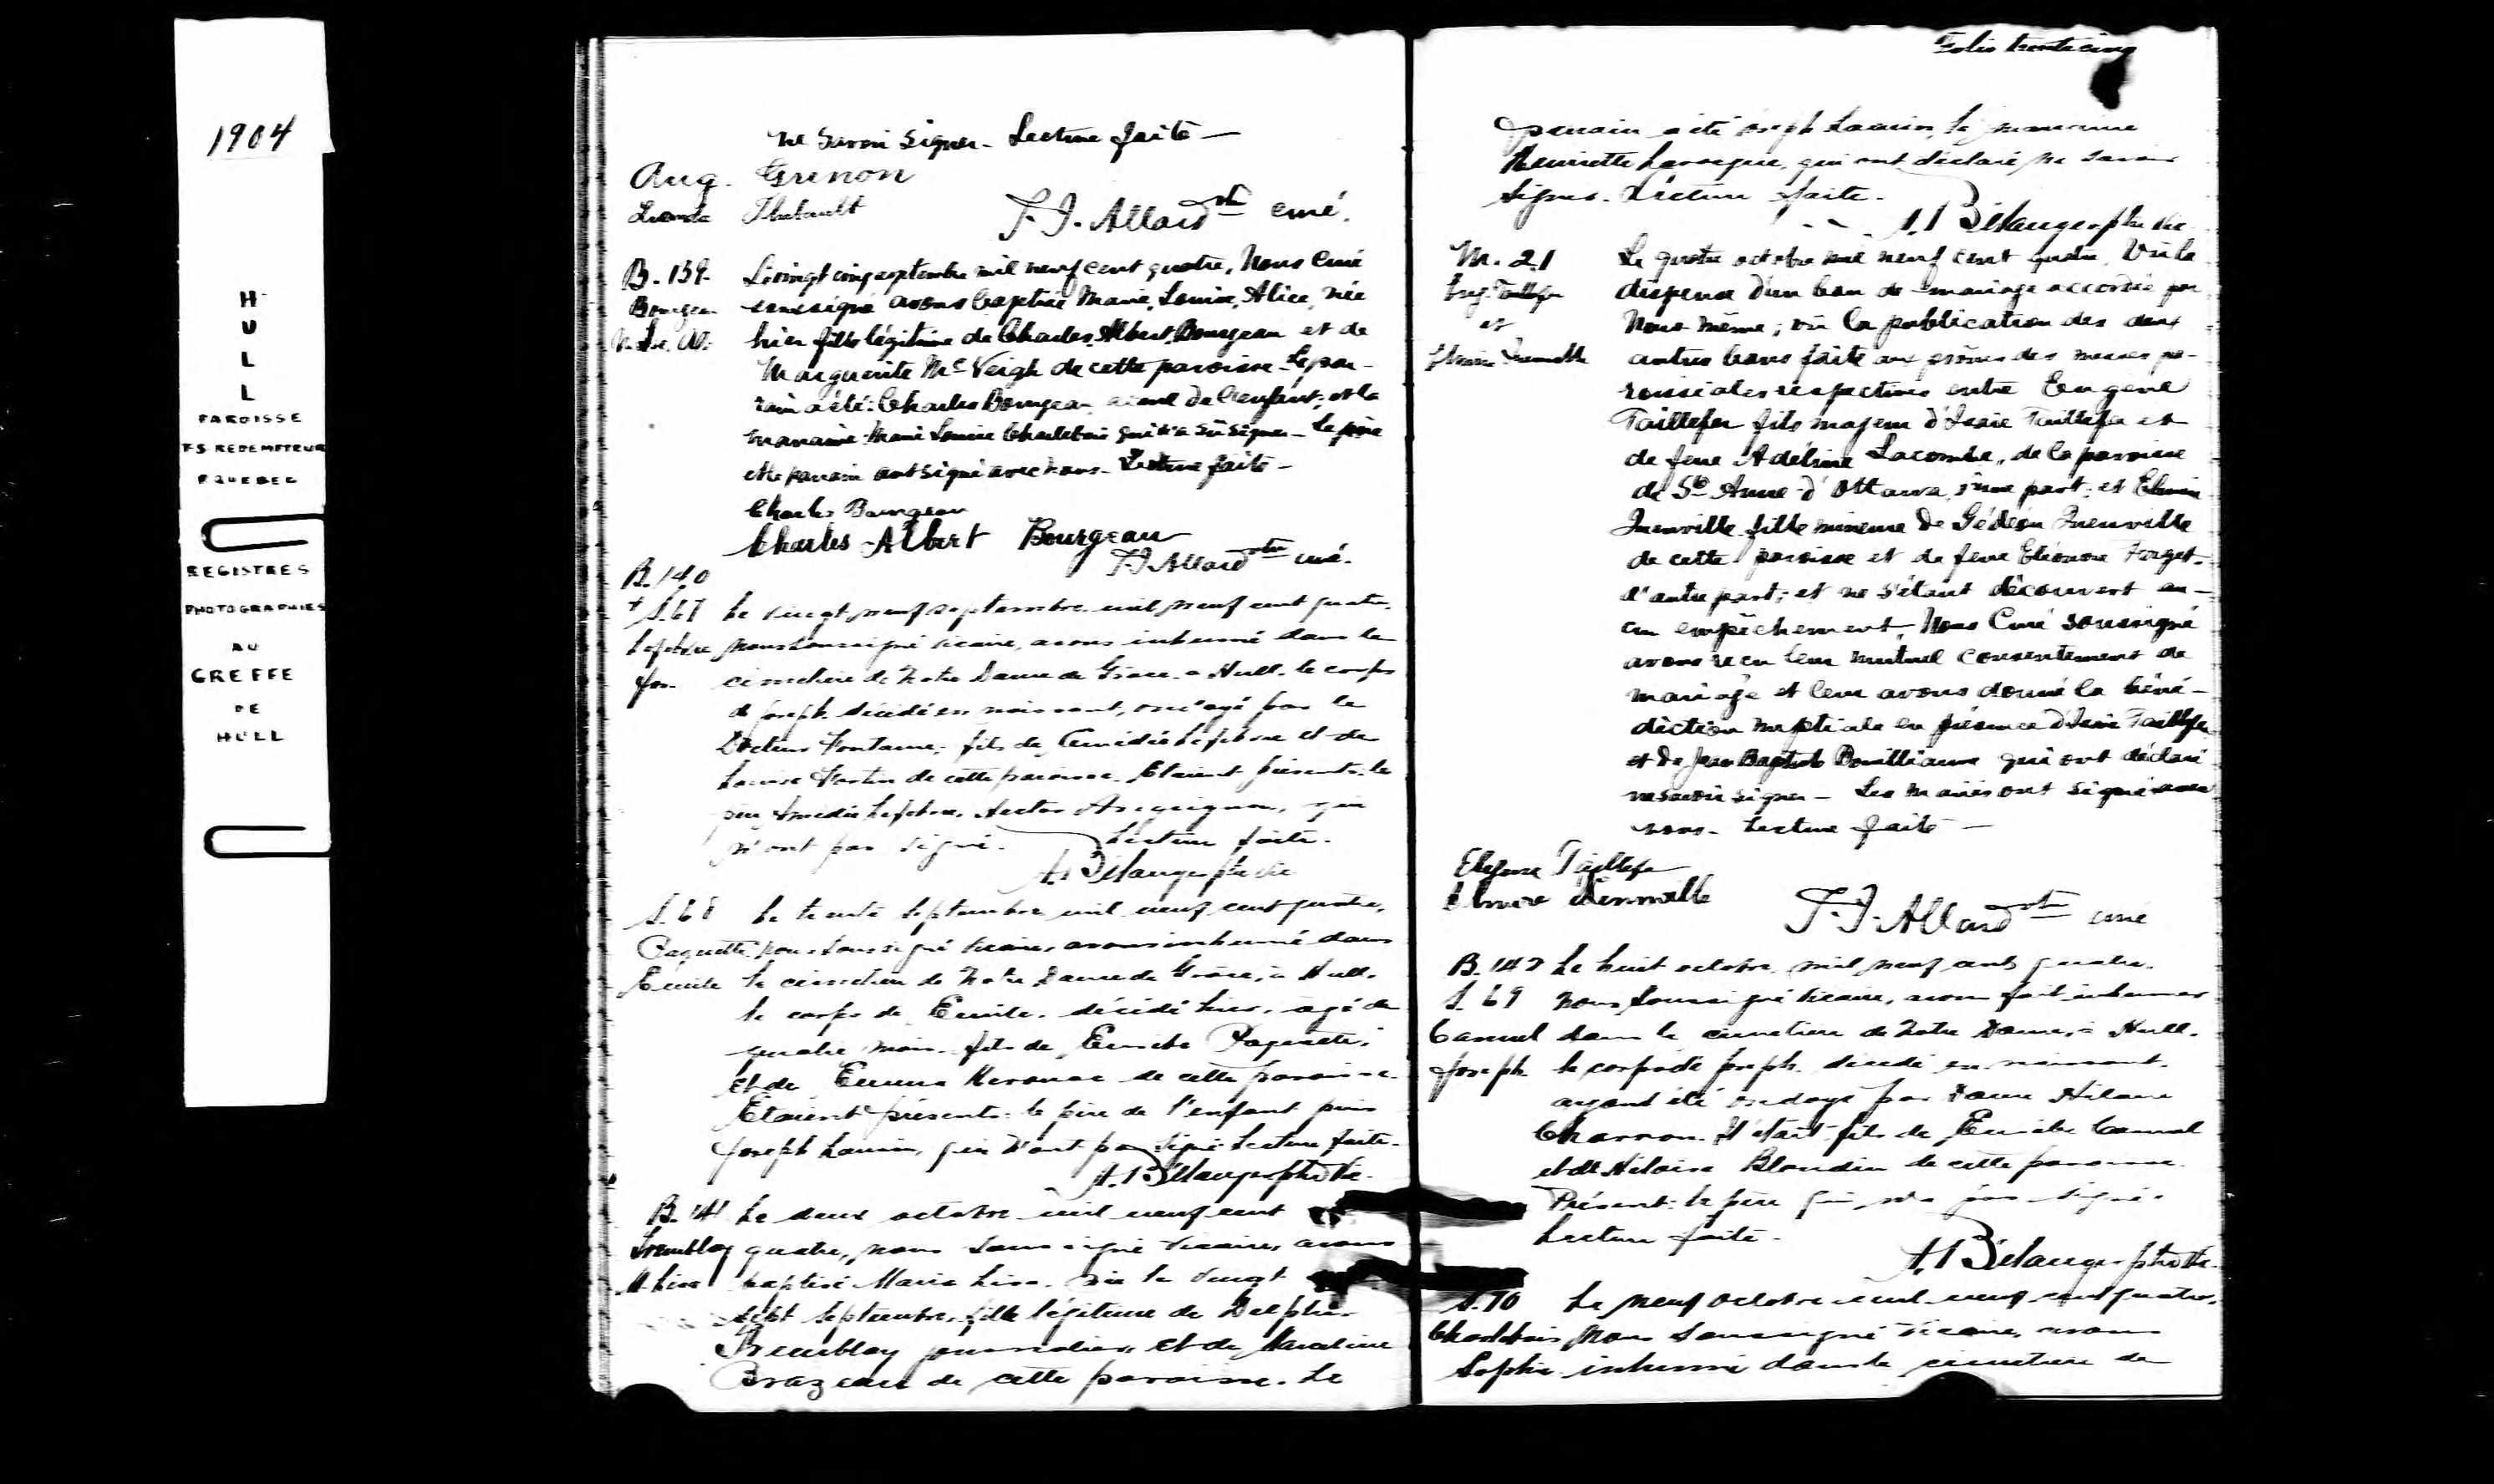 1904
H
U
L
L
PAROISSE
REGISTRES
PHOTOGRAPHIES
AU
GREFFE
DE
HULL
ne savoir signer. Lecture faite —
Aug. Grenon
Thibault
F.J. Allard ptre curé.
B. 139.
Bourgeau
Le vingt cinq septembre mil neuf cent quatre, Nous Curé
soussigné avons baptisé Marie, Louise, Alice, née
hier fille légitime de Charles Albert Bourgeau et de
Marguerite McVeigh de cette paroisse. Le par-
rain a été: Charles Bourgeau aieul de l'enfant; et la
marraine Marie Louise Charlebois qui n'a su signer. Le père
et le parrain ont signé avec nous. Lecture faite —
Charles Bourgeau
Charles-Albert Bourgeau
F.J. Allard ptre curé.
B. 140
+ S. 67
Lefebvre
Jos.
Le vingt neuf septembre mil neuf cent quatre,
nous soussigné vicaire, avons inhumé dans le
cimetière de Notre Dame de Grâce, à Hull, le corps
de Joseph, décédé en naissant, ondoyé par le
Docteur Fontaine, fils de Amédée Lefebvre et de
Louise Fortin de cette paroisse. Etaient présents: le
père Amédée Lefebvre, Hector, qui
n'ont pas signé. Lecture faite.
A. Bélanger ptre vic
S. 68
Paquette
Emile
Le trente septembre mil neuf cent quatre,
nous soussigné vicaire, avons inhumé dans
le cimetière de Notre Dame de Grâce, à Hull,
le corps de Emile, décédé hier, agé de
quatre mois, fils de Paquette,
et de Emma de cette paroisse.
Etaient présents: le père de l'enfant puis
Joseph, qui n'ont pas signé. Lecture faite.
A. Bélanger ptre vic.
B. 141
Tremblay
M. Lisa
Le deux octobre mil neuf cent
quatre, nous soussigné vicaire, avons
baptisé Maria Lisa, née le vingt
sept septembre, fille légitime de Delphis
Tremblay journalier, et de
Brazeau de cette paroisse. Le
Folio trente cinq
parrain a été Joseph, la marraine
Henriette Larocque, qui ont déclaré ne savoir
signer. Lecture faite.
A. Bélanger ptre vic
M. 21
Taillefer
et
Le quatre octobre mil neuf cent quatre, Vu la
dispense d'un ban de mariage accordée par
Nous-même; vu la publication des deux
autres bans faite aux prônes des messes pa-
roissiales respectives entre Eugène
Taillefer fils majeur d'Isaïe Taillefer et
de feue Adéline Lacombe, de la paroisse
de Ste Anne d'Ottawa d'une part; et
fille mineure de Gédéon
de cette paroisse et de feue Eléonore Forget,
d'autre part; et ne s'étant découvert au-
cun empêchement, Nous Curé soussigné
avons reçu leur mutuel consentement de
mariage et leur avons donné la béné-
diction nuptiale en présence d'Isaïe Taillefer
et de Jean Baptiste qui ont déclaré
ne savoir signer — Les mariés ont signé avec
nous. Lecture faite —
Taillefer
F.J. Allard ptre curé
B. 142
S. 69
Joseph
Le huit octobre mil neuf cent quatre,
nous soussigné vicaire, avons fait inhumer
dans le cimetière de Notre Dame, à Hull,
le corps de Joseph, décédé en naissant,
ayant été ondoyé par Dame
Charron. Il était fils de
et de Blondin de cette paroisse.
Présent: le père qui n'a pas signé.
Lecture faite.
A. Bélanger ptre vic.
S. 70
Charlebois
Sophie
Le neuf octobre mil neuf cent quatre,
nous soussigné vicaire, avons
inhumé dans le cimetière de